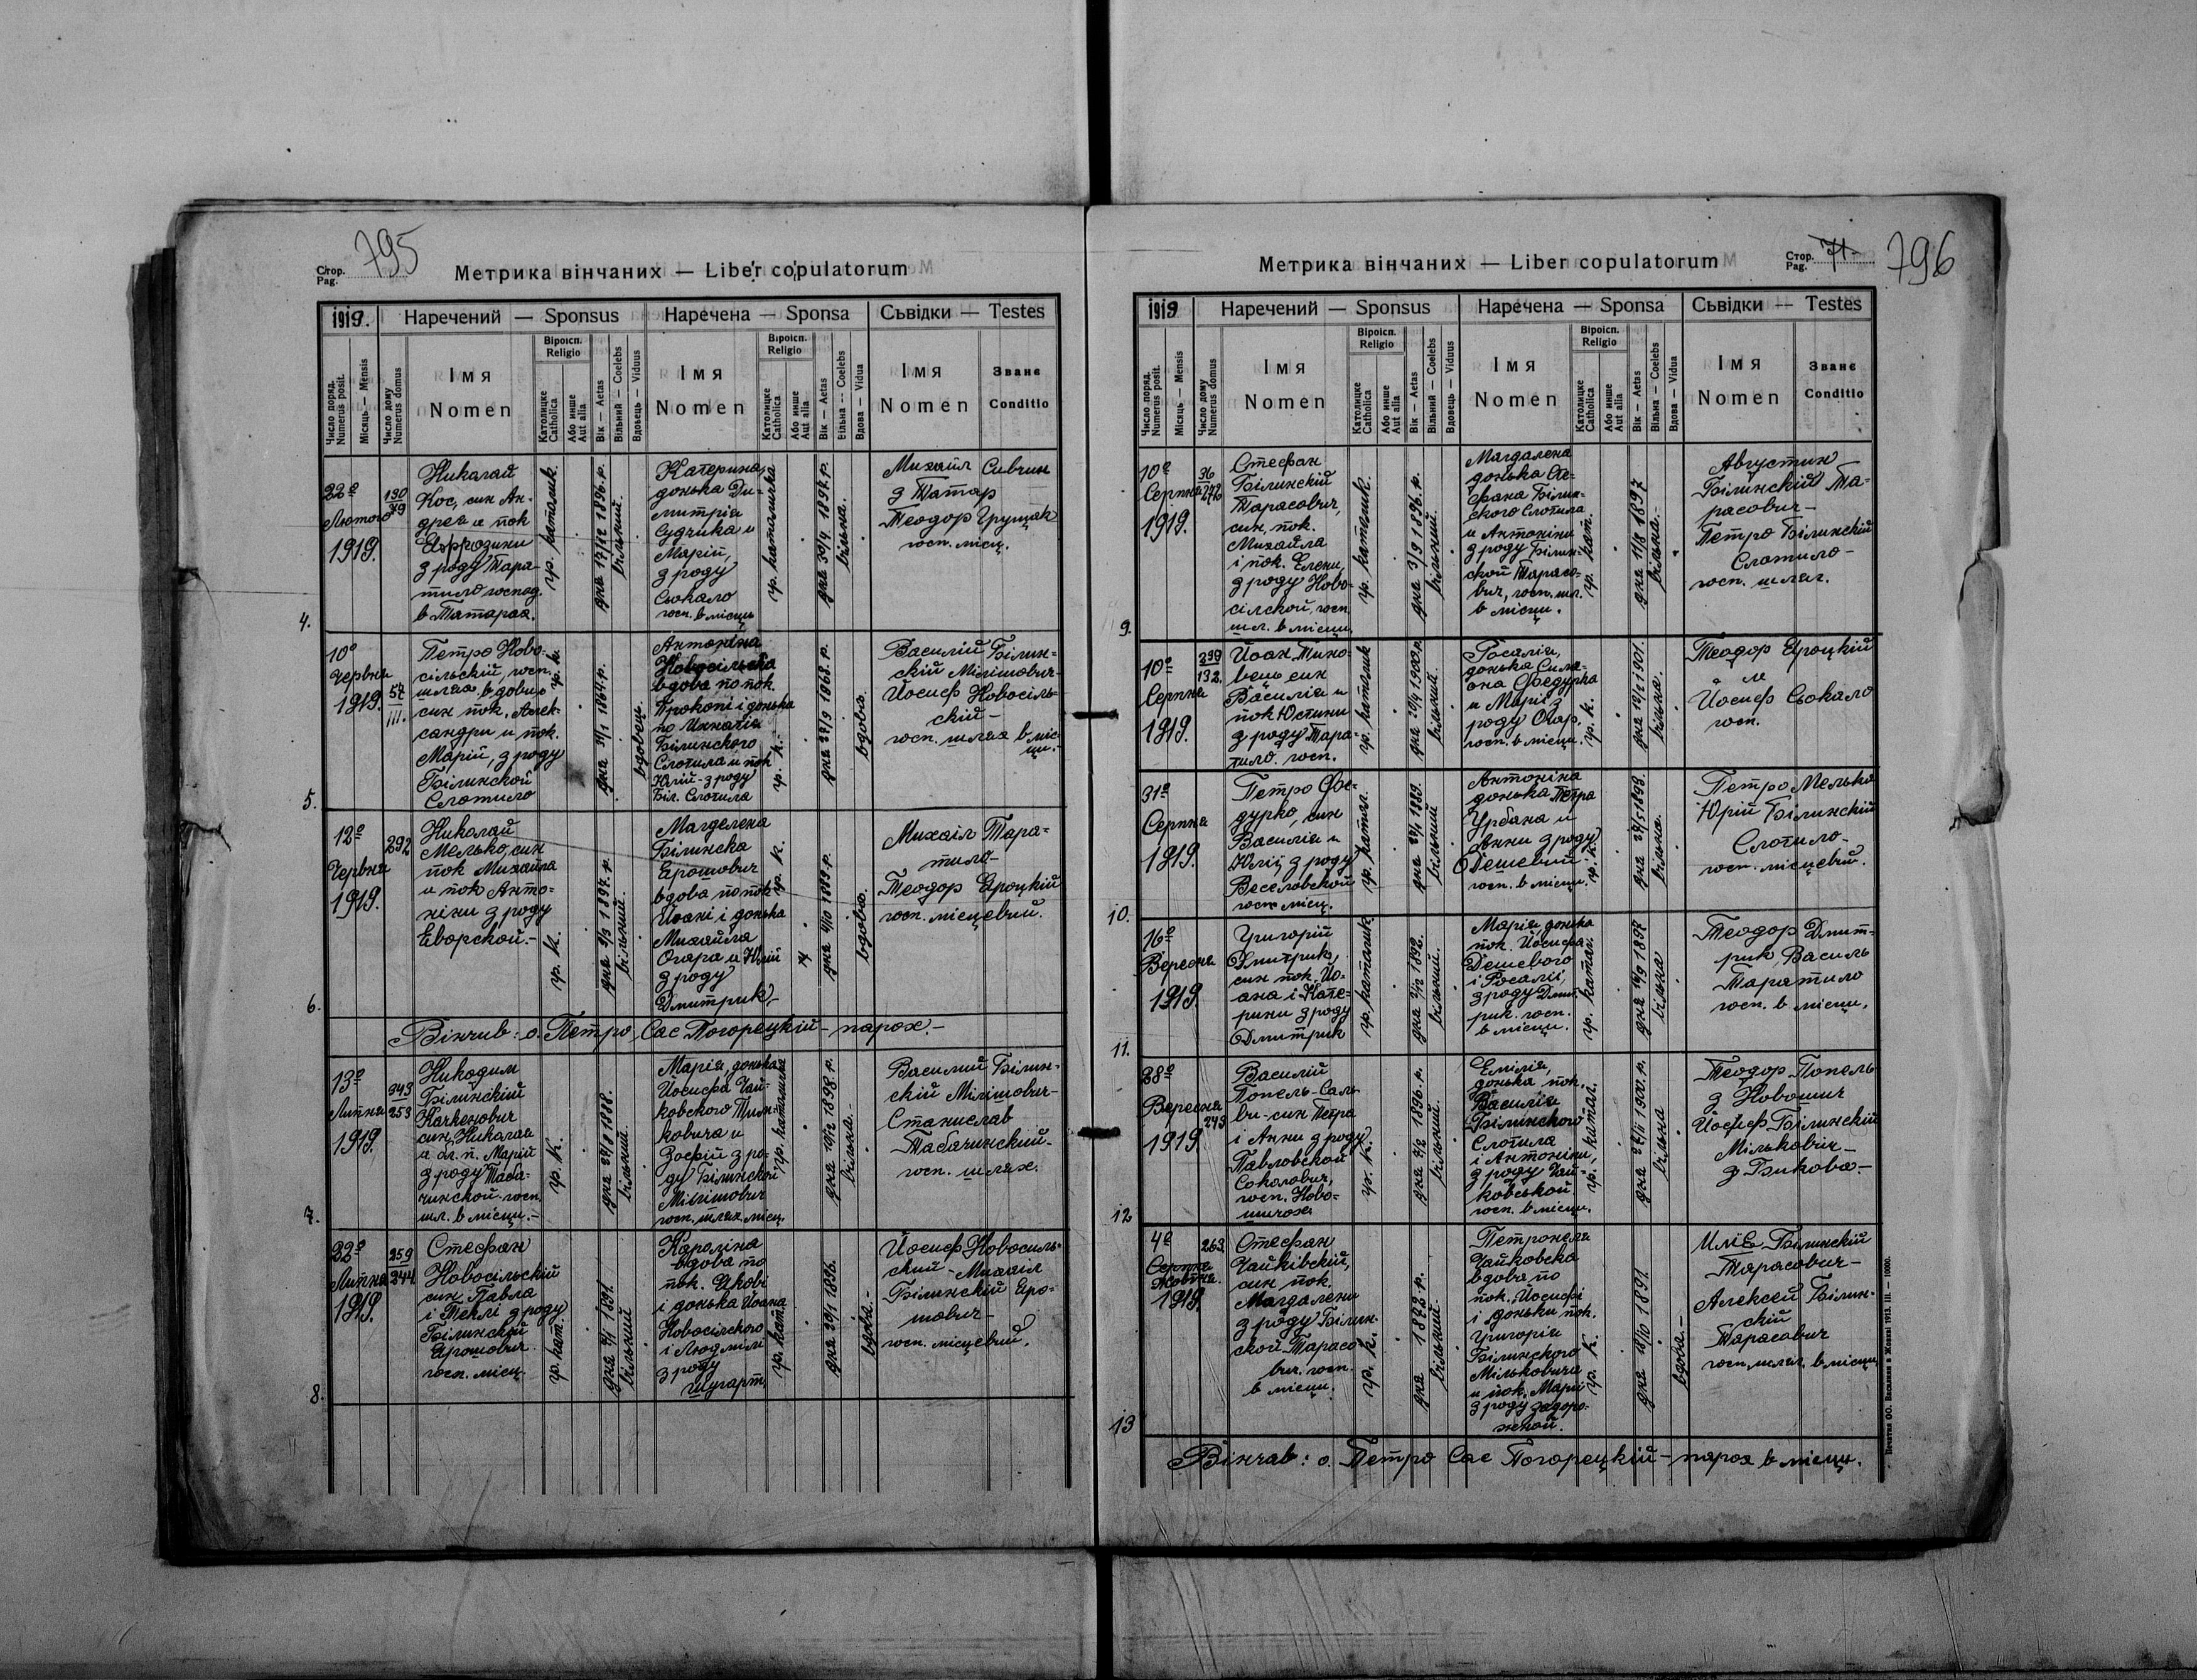 795
Стор.
Pag.
Метрика вінчаних — Liber copulatorum
1919.
Наречений — Sponsus
Наречена — Sponsa
Сьвідки — Testes
Число поряд.
Numerus posit.
Місяць — Mensis
Число дому
Numerus domus
Імя
Nomen
Віроісп.
Religio
Католицке
Catholica
Або инше
Aut alia
Вік — Aetas
Вільний — Coelebs
Вдовець — Viduus
Імя
Nomen
Віроісп.
Religio
Католицке
Catholica
Або инше
Aut alia
Вік — Aetas
Вільна — Coelebs
Вдова — Vidua
Імя
Nomen
Званє
Conditio
4.
22º
Лютого
1919.
Николай
Кос, син Ан-
дрея и пок
Евфрозини
з роду Тара-
тило господ.
в Татарах.
гр. католик.
дня 17/12 1896. р.
вільний.
Катерина,
донька Ди-
митрія
Судчика и
Марій,
з роду
Сокало
госп. в місцу
гр. католичка
дня 30/4 1897. р.
вільна.
Михайл Сивчик
з Татар
Теодор Грущак
госп. місц.
5.
10º
Червня
1919.
57
III.
Петро Ново-
сільський, госп.
шлях. вдовц
син пок. Алек-
сандри и пок.
Марій, з роду
Білинской
Слотило
гр. к.
вдовець.
Антоніна
Новосільска
вдова по пок.
Прокопі і донька
по Игнатія
Білинского
Слотила и пок
Юлій з роду
Біл. Слотила
гр. к.
дня 27/9 1868. р.
вдова.
Василій Білин-
скій Мілішович-
Йосиф Новосіль-
скій-
госп. шлях в міс-
ци.
6.
12º
Червня
1919.
292
Николай
Мелько, син
пок Михайла
и пок Анто-
ніни з роду
Еворской.-
гр. к.
дня 9/3 1897. р.
вільний.
Магделена
Білинска
Ерошович
вдова по пок
Йоані і донька
Михайла
Огара и Юлій
з роду
Дмитрик.-
гр. к.
дня 4/10 1889. р.
вдова.
Михаіл Тара-
тило-
Теодор Яроцкій
госп. місцевий.
Вінчив: о. Петро Сас Погорецкій - парох.-
7.
13º
Липня
1919.
343
253
Никодим
Білинскій
син Николая
и бл. п. Марій
з роду Таба-
чинской госп.
шл. в місци.-
гр. к.
дня 27/8 1888.
вільний.
Марія, донька
Йосифа Чай-
ковского
ковича и
Зофій з ро-
ду Білинской
Мілішович
госп. шлях. місц.
гр. католичка
дня 10/12 1898. р.
вільна.-
Василий Білин-
скій Мілішович-
Станислав
Табачинский.
госп. шлях.
8.
22º
Липня
1919.
259
244
Стефан
Новосільскій
син Павла
і Теклі з роду
Білинской
Ярошович
госп. місц.
гр. кат.
дня 4/1 1891.
вільний
Кароліна
вдова по
пок. Якові
і донька Йоана
Новосілского
і Людмили
з роду
Шугарт.
гр. кат.
дня 29/1 1886.
вдова.-
Йосиф Новосиль-
ский - Михаіл
Білинскій Яро-
шович-
госп. місцевий.
796
Стор.
Pag.
71-
Метрика вінчаних — Liber copulatorum
1919
Наречений — Sponsus
Наречена — Sponsa
Сьвідки — Testes
Число поряд.
Numerus posit.
Місяць — Mensis
Число дому
Numerus domus
Імя
Nomen
Віроісп.
Religio
Католицке
Catholica
Або инше
Aut alia
Вік — Aetas
Вільний — Coelebs
Вдовець — Viduus
Імя
Nomen
Віроісп.
Religio
Католицке
Catholica
Або инше
Aut alia
Вік — Aetas
Вільна — Coelebs
Вдова — Vidua
Імя
Nomen
Званє
Conditio
9.
10º
Серпня
1919.
36
Стефан
Білинскій
Тарасович,
син, пок.
Михайла
і пок. Елени,
з роду Ново-
сілской, госп.
шл. в місци.
гр. католик.
дня 3/9 1896. р.
вільний.
Магдалена
донька Сте-
фана Білин-
ского Слотила
и Антоніни
з роду Білин-
ской Тарасо-
вич, госп. шл.
в місци.
гр. кат.
дня 11/8 1897
вільна.-
Августин
Білинскій Та-
расович-
Петро Білинскій
Слотило-
госп. шлях.
10º
Серпня
1919.
132.
Йоан Тимо-
вець син
Василія и
пок Юстини
з роду Тара-
тило. госп.
гр. католик
вільний.
Росалія,
донька Симе-
она Федурка
и Марії з
роду Огар.
госп. в місци.
гр. к.
дня 12/2 1901.
вільна.
Теодор Яроцкий
и
Йосиф Сокало
госп.
10.
31º
Серпня
1919.
Петро Фе-
дурко, син
Василія и
Юлії, з роду
Веселовской
госп місц.
гр. катол.
вільний
Антоніна
донька Петра
Урбана и
Анни з роду
Дешевий
госп. в місци.
гр. к.
вільна.
Петро Мелько
Юрій Білинскій
Слотило-
госп. місцевий.
11.
16º
Вересня
1919.
Григорій
Дмитрик,
син пок. Йо-
ана і Кате-
рини з роду
Дмитрик
гр. католик.
дня 2/12 1892.
вільний.
Марія донька
пок. Йосифа
Дешевого
і Росалії,
з роду Дмит-
рик. госп.
в місци.
гр. катол.
дня 16/9 1897
вільна
Теодор Дмит-
рик Василь
Таратило
госп. в місци.
12
28º
Вересня
1919.
243
Василій
Попель-Саль-
ви-син Петра
і Анни з роду
Павловской
Соколович,
госп. Ново-
шичох
гр. к.
дня 2/2 1896. р.
вільний.
Емілія,
донька пок.
Василія
Білинского
Слотила
і Антоніни,
з роду Чай-
ковськой
госп. в місци.
гр. катол.
дня 22/11 1900. р.
вільна
Теодор Попель
з Новошич
Йосиф Білинскій
Мількович-
з Бикова-
13
4º
Серпня
Жовтня.
1919.
263.
Стефан
Чайківскій,
син пок.
Магдалени
з роду Білин-
ской Тарасо-
вич. госп.
в місци.
гр. к.
дня 1882 р.
вільний.
Петронеля
Чайковска
вдова по
пок. Йосифі
і доньки пок.
Григорія
Білинского
Мільковича
и пок. Марії
з роду Задоро-
жной.
гр. к.
дня 18/10 1891.
вдова.-
Илія Білинскій
Тарасович-
Алексей Білин-
скій
Тарасович
госп. шлях. в місци
Вінчав: о. Петро Сас Погорецкій - парох в місци.
Печатня ОО. Василиян в Жовкві 1913. III. — 10000.